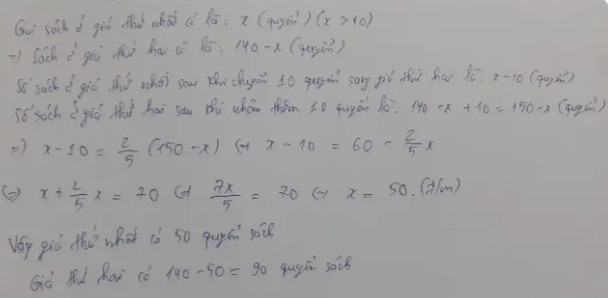 Gọi sách ở giá thứ nhất có là: x (quyển) (x > 10)
=> Sách ở giá thứ hai có là: 140 - x (quyển)
Số sách ở giá thứ nhất sau khi chuyển 10 quyển sang giá thứ hai là: x - 10 (quyển)
Số sách ở giá thứ hai sau khi nhận thêm 10 quyển là: 140 - x + 10 = 150 - x (quyển)
=> x - 10 = 2/5 (150 - x) <=> x - 10 = 60 - 2/5 x
<=> x + 2/5 x = 70 <=> 7x/5 = 70 <=> x = 50. (T/m)
Vậy giá thứ nhất có 50 quyển sách
Giá thứ hai có 140 - 50 = 90 quyển sách